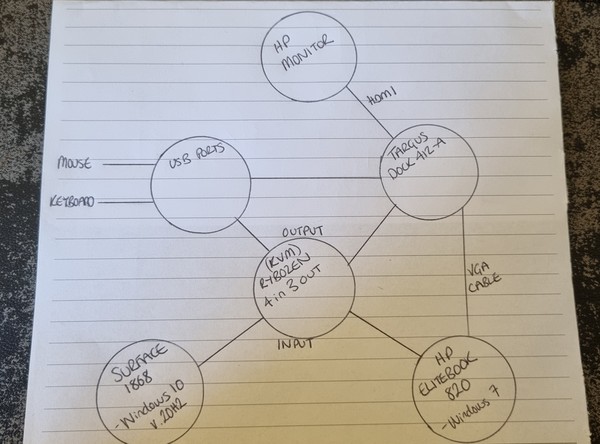 HP
MONITOR
HDMI
TARGUS
DOCK 412-A
USB PORTS
MOUSE
KEYBOARD
OUTPUT
(KVM)
RYBOZEN
4 in 3 OUT
VGA
CABLE
INPUT
SURFACE
1868
-Windows 10
v.20H2
HP
ELITEBOOK
820
-Windows 7